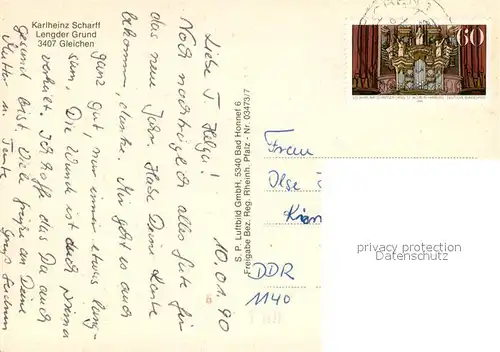 Karlheinz Scharff
Lengder Grund
3407 Gleichen
10.01.90
Liebe T. Helga!
Noch nachträglich alles Gute für
das neue Jahr. Habe Deine Karte
bekommen, danke. Mir geht es auch
ganz gut, nur immer etwas lang-
sam. Die Wunde ist auch prima
verheilt. Ich hoffe das Du auch
gesund bist. Viele Grüße an Deine
Mutter u. Tante
S. P. Luftbild GmbH, 5340 Bad Honnef 6
Freigabe Bez. Reg. Rheinh. Pfalz - Nr. 03473/7
60
Frau
Ilse
DDR
1140
privacy protection
ansichtskartenversand.com